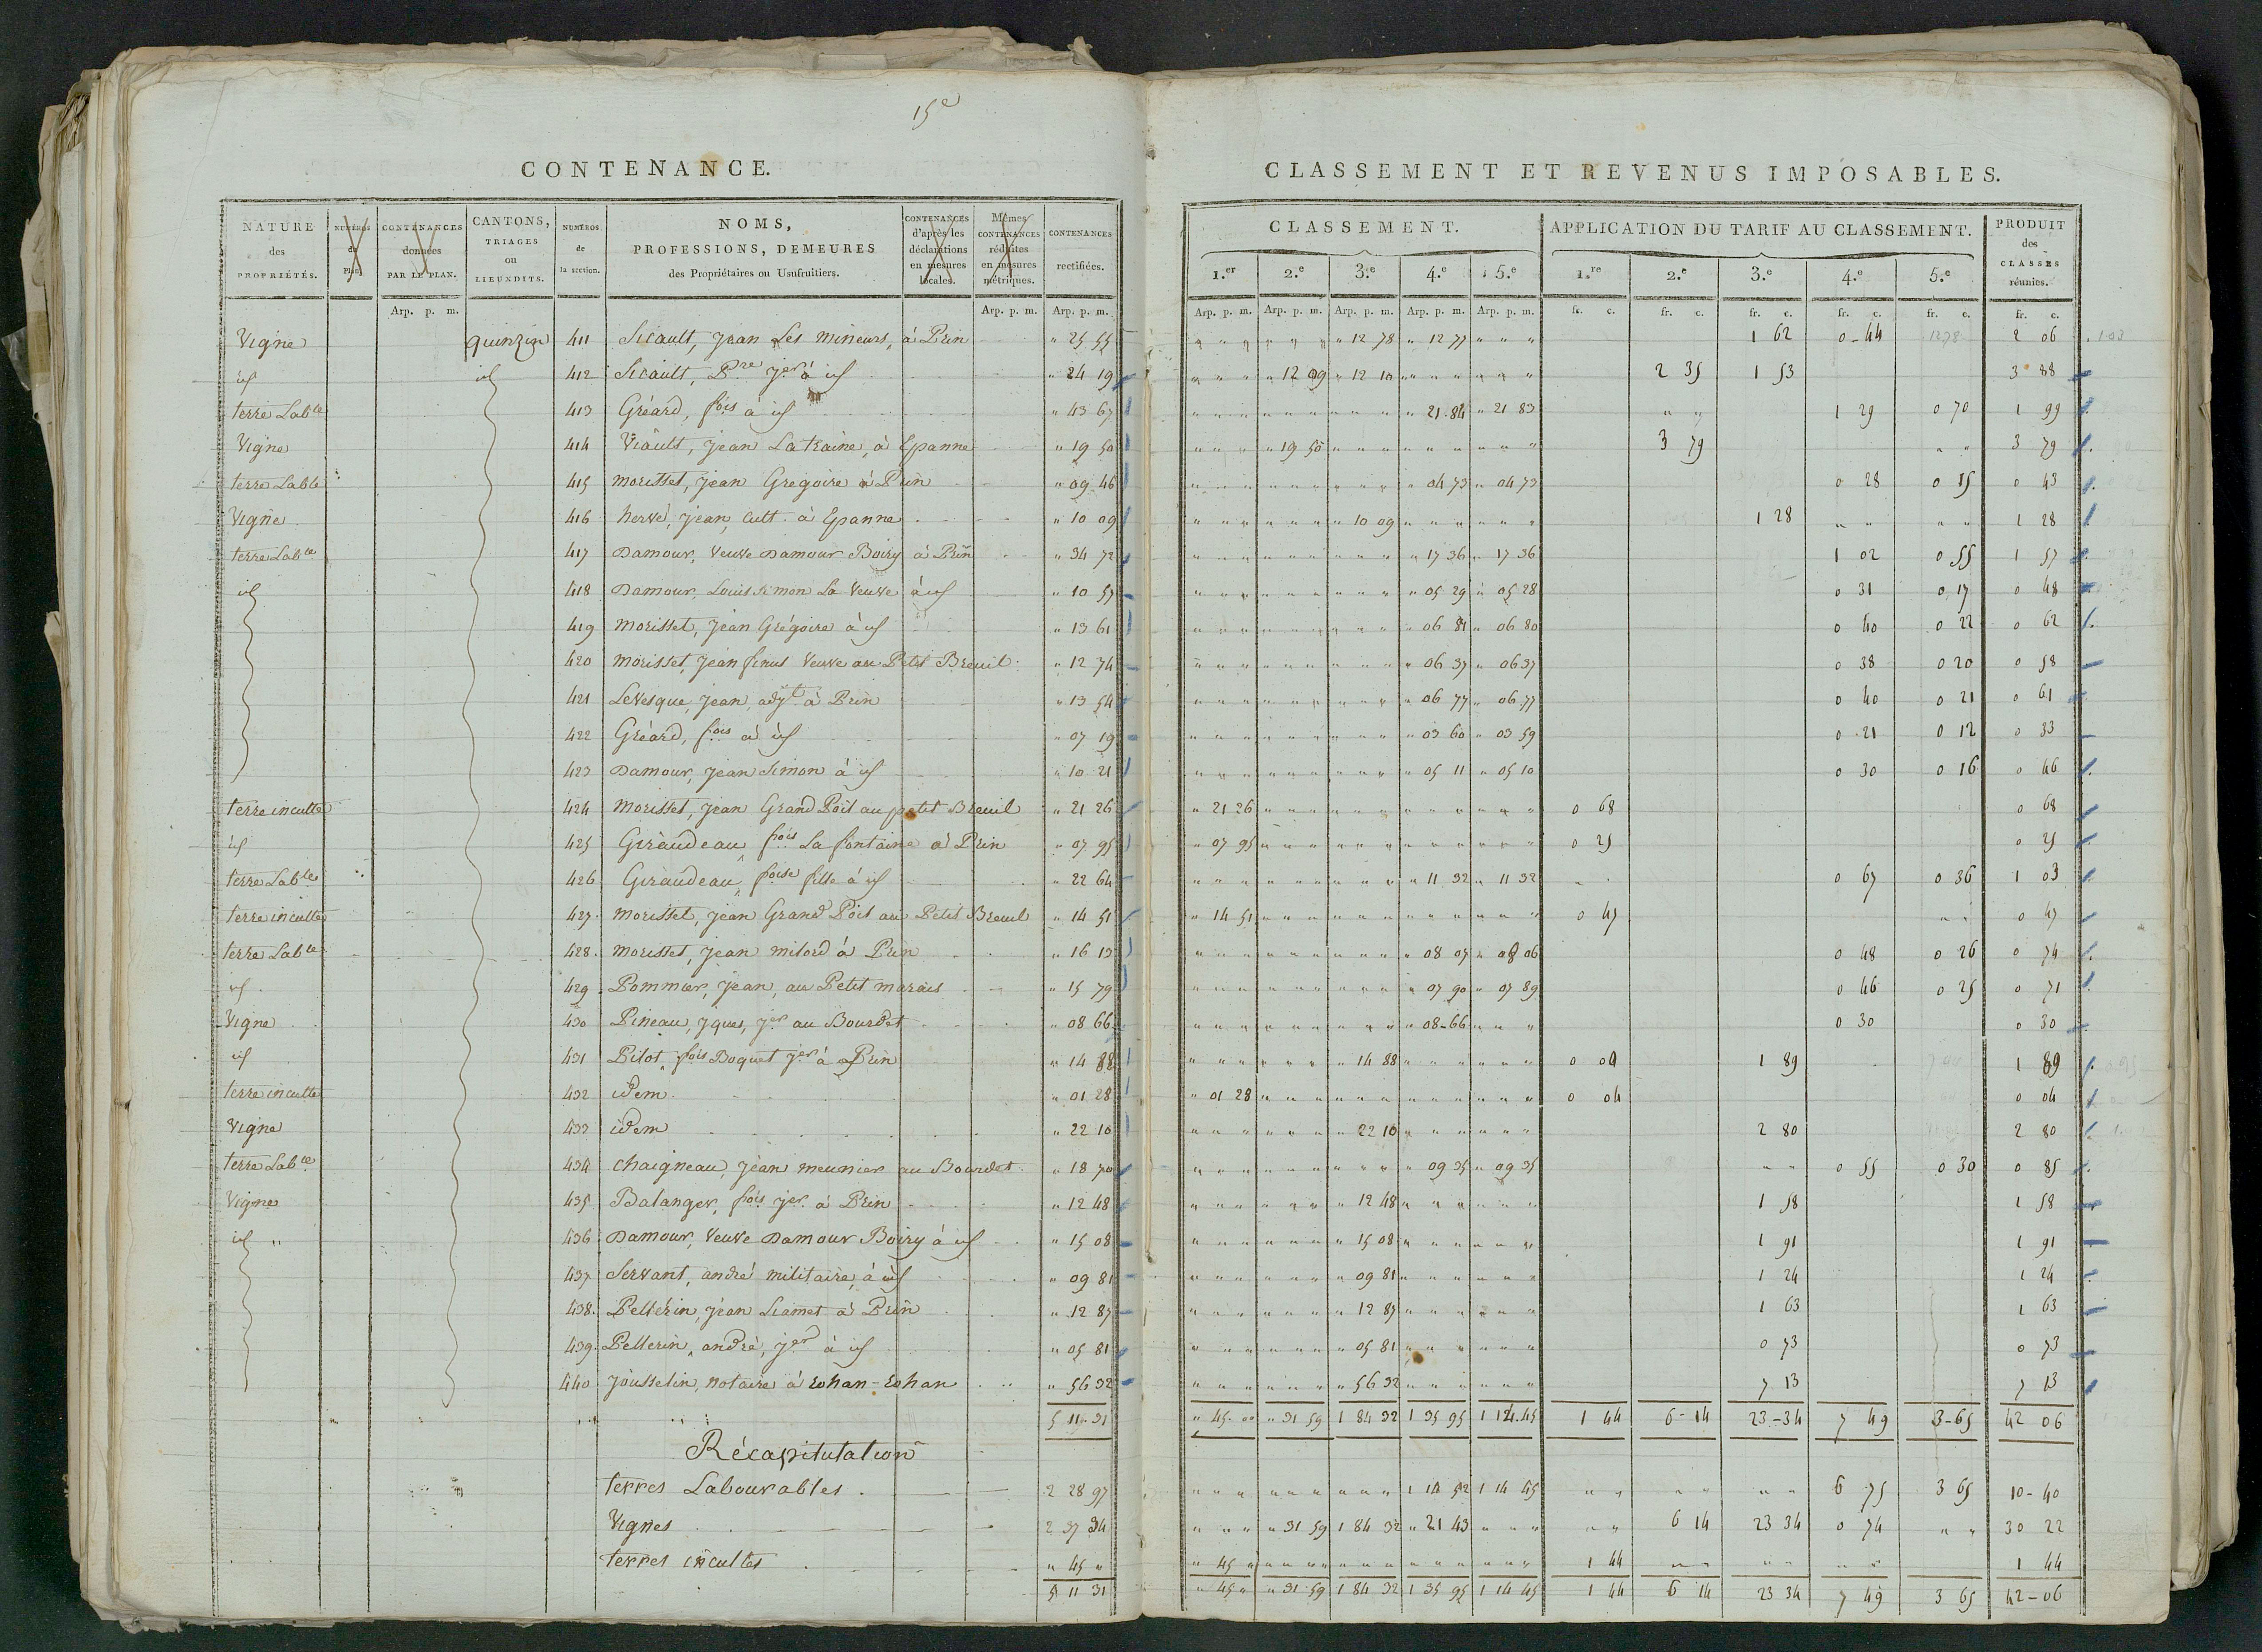 15e
CONTENANCE.
NATURE des PROPRIÉTÉS. NUMÉROS du Plan. CONTENANCES données PAR LE PLAN. CANTONS, TRIAGES ou LIEUXDITS. NUMÉROS de la section. NOMS, PROFESSIONS, DEMEURES des Propriétaires ou Usufruitiers. CONTENANCES d'après les déclarations en mesures locales. Mêmes CONTENANCES réduites en mesures métriques. CONTENANCES rectifiées.
Arp. p. m. Arp. p. m. Arp. p. m.
Vigne quinzin 411 Sicault, Jean Les mineurs, à Prin " 25 55
id id 412 Sicault, Pre jer à id " 24 19
terre Lable 413 Gréard, fois à id " 43 67
Vigne 414 Viault, Jean Latraine, à Epanne " 19 50
terre Lable 415 morisset, Jean Gregoire à Prin " 09 46
Vigne 416 hervé, Jean, Cult. à Epanne " 10 09
terre Lable 417 Damour, Veuve Damour Boiry à Prin " 34 72
id 418 Damour, Louis Simon La Veuve à id " 10 57
419 Morisset, Jean Grégoire à id " 13 61
420 Morisset, Jean finus Veuve au Petit Breuil " 12 74
421 Levesque, Jean, adjt à Prin " 13 54
422 Gréard, fois à id " 07 19
423 Damour, Jean Simon à id " 10 21
terre inculte 424 Morisset, Jean Grand Poil au petit Breuil " 21 26
id 425 Giraudeau, fois La fontaine à Prin " 07 95
terre Lable 426 Giraudeau, foise fille à id " 22 64
terre inculte 427. Morisset, Jean Grand Poil au Petit Breuil " 14 51
terre Lable 428. Morisset, Jean milord à Prin " 16 13
id. 429 Pommier, Jean, au Petit marais " 15 79
Vigne 430 Pineau, jques, jer au Bourdet " 08 66
id 431 Pilot, fois Boquet jer à Prin " 14 88
terre inculte 432 idem " 01 28
Vigne 433 idem " 22 10
terre Lable 434 Chaigneau, Jean meunier au Bourdet " 18 70
Vigne 435 Balanger, fois jer. à Prin " 12 48
id " 436 Damour, Veuve Damour Boiry à id " 15 08
437 Servant, andré militaire, à id " 09 81
438. Pellerin, Jean Liamet à Prin " 12 87
439. Pellerin, andré, jer à id " 05 81
440 Jousselin, notaire à Rohan-Rohan " 56 32
5 11 31
Récapitulation
terres Labourables 2 28 97
Vignes 2 37 34
terres incultes " 45 "
5 11 31
CLASSEMENT ET REVENUS IMPOSABLES.
CLASSEMENT. APPLICATION DU TARIF AU CLASSEMENT. PRODUIT des CLASSES réunies.
1.er 2.e 3.e 4.e 5.e 1.re 2.e 3.e 4.e 5.e
Arp. p. m. Arp. p. m. Arp. p. m. Arp. p. m. Arp. p. m. fr. c. fr. c. fr. c. fr. c. fr. c. fr. c.
" 12 78 " 12 77 1 62 0-44 1278 2 06 103
" 12 09 " 12 10 2 35 1 53 3 88
" 21 84 " 21 83 1 29 0 70 1 99
" 19 50 3 79 3 79
" 04 73 " 04 73 0 28 0 15 0 43
" 10 09 1 28 1 28
" 17 36 " 17 36 1 02 0 55 1 57
" 05 29 " 05 28 0 31 0 17 0 48
" 06 81 " 06 80 0 40 0 22 0 62
" 06 37 " 06 37 0 38 0 20 0 58
" 06 77 " 06 77 0 40 0 21 0 61
" 03 60 " 03 59 0 21 0 12 0 33
" 05 11 " 05 10 0 30 0 16 0 46
" 21 26 0 68 0 68
" 07 95 0 25 0 25
" 11 32 " 11 32 0 67 0 36 1 03
" 14 51 0 47 0 47
" 08 07 " 08 06 0 48 0 26 0 74
" 07 90 " 07 89 0 46 0 25 0 71
" 08-66 0 30 0 30
" 14 88 0 04 1 89 1 89
" 01 28 0 04 0 04
" 22 10 2 80 2 80
" 09 35 " 09 35 0 55 0 30 0 85
" 12 48 1 58 1 58
" 15 08 1 91 1 91
" 09 81 1 24 1 24
" 12 87 1 63 1 63
" 05 81 0 73 0 73
" 56 32 7 13 7 13
" 45. 00 " 31 59 1 84 32 1 35 95 1 14.45 1 44 6-14 23-34 7 49 3-65 42 06
1 14 52 1 14 45 6 75 3 65 10-40
" 31 59 1 84 32 " 21 43 6 14 23 34 0 74 30 22
" 45 " 1 44 1 44
" 45 " " 31 59 1 84 32 1 35 95 1 14 45 1 44 6 14 23 34 7 49 3 65 42-06